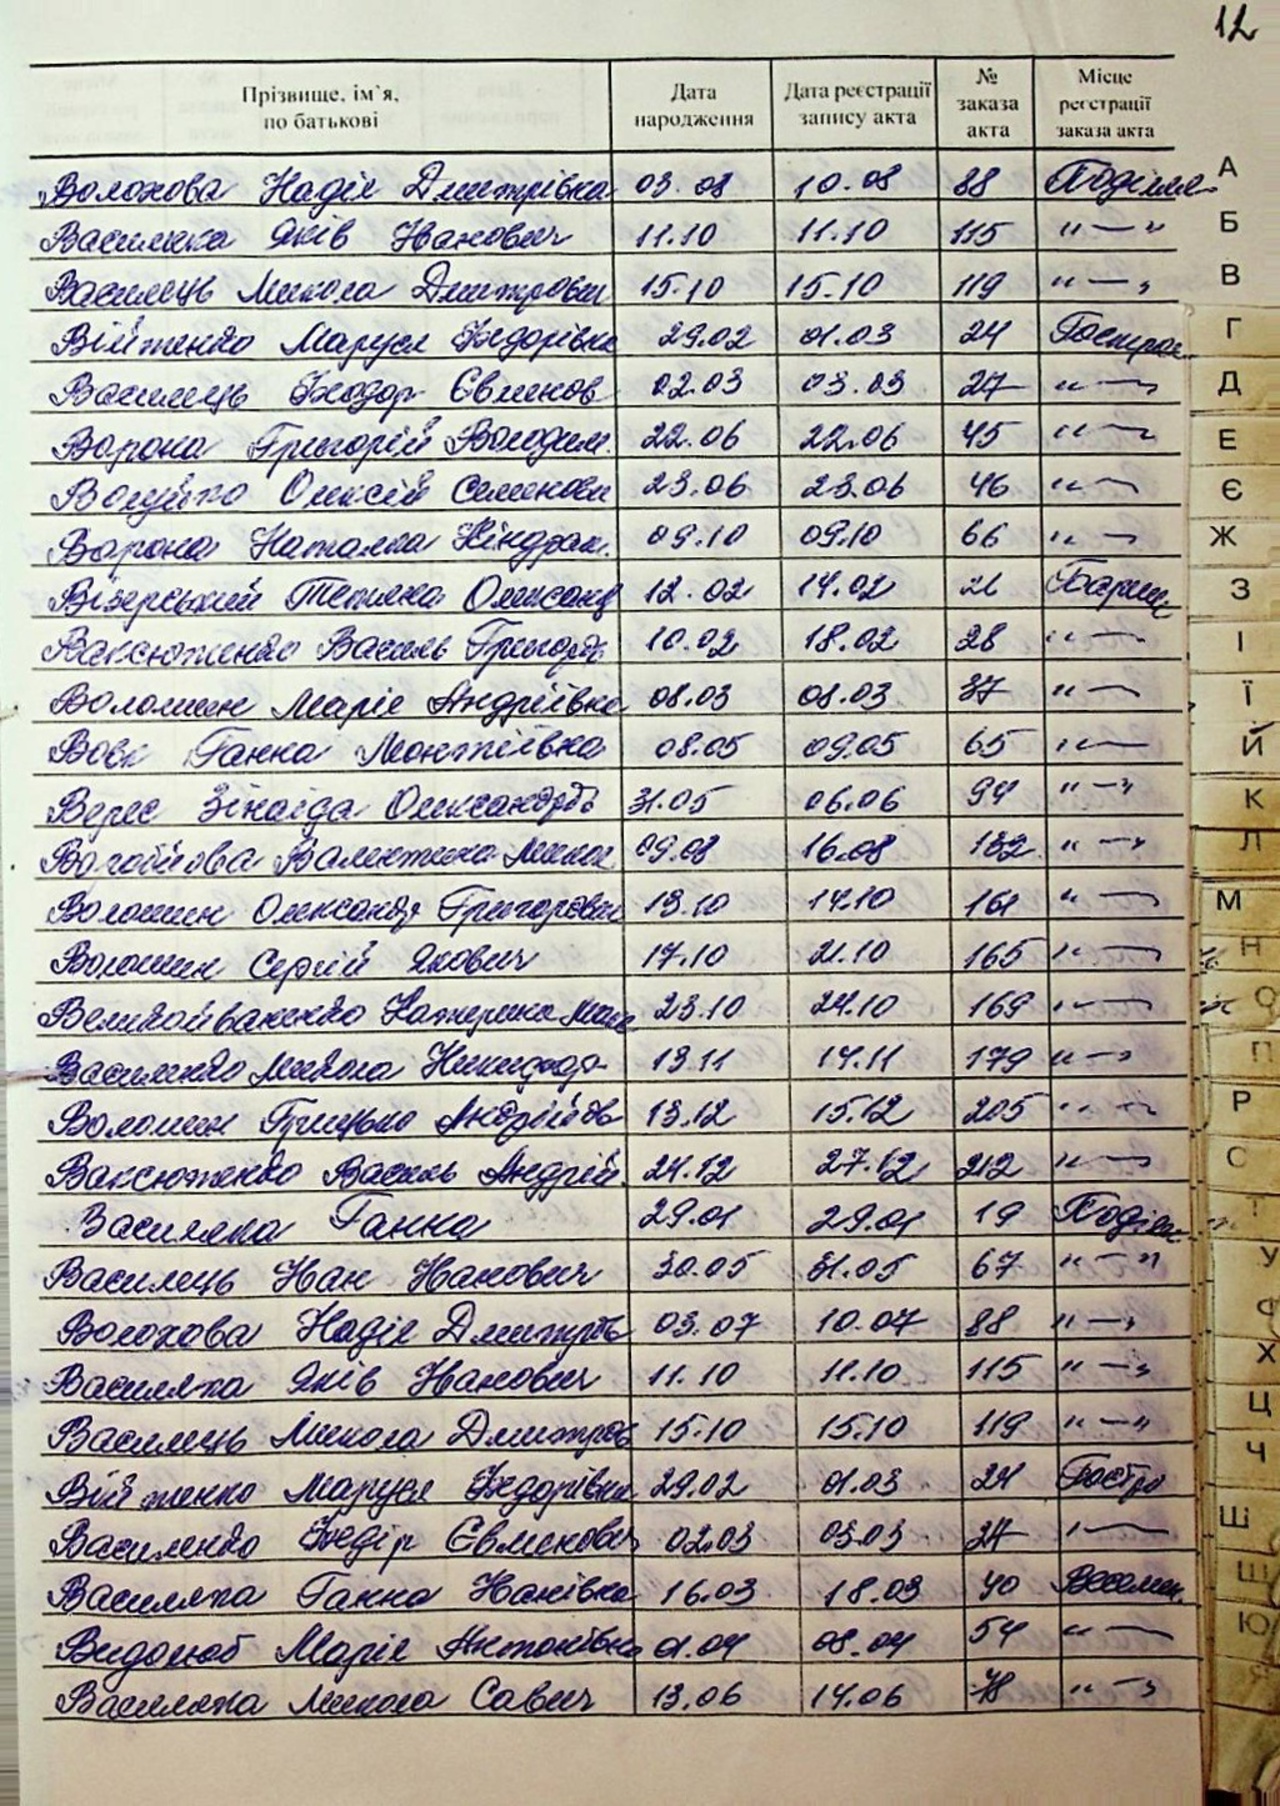 12
Прізвище, ім`я, по батькові Дата народження Дата реєстрації запису акта № заказа акта Місце реєстрації заказа акта
Волохова Надія Дмитрівна 03.08 10.08 88
Василяка Яків Іванович 11.10 11.10 115 "—"
Василець Микола Дмитрович 15.10 15.10 119 "—"
Війтенко Маруся Федорівна 29.02 01.03 24
Василець Феодор Євменов 02.03 03.03 27 "—"
Ворона Григорій Володим. 22.06 22.06 45 "—"
Олексій Семенович 23.06 23.06 46 "—"
Ворона Наталка Кіндрат. 09.10 09.10 66 "—"
Візерський Тетяна Олександ 12.02 14.02 21
Ваксютенко Василь Григоров 10.02 18.02 28 "—"
Волошин Марія Андріївна 08.03 08.03 37 "—"
Вовк Ганна 08.05 09.05 65 "—"
Верес Зінаїда Олександрів 31.05 06.06 94 "—"
Валентина Микол 09.08 16.08 132 "—"
Волошин Олександр Григорович 13.10 14.10 161 "—"
Волошин Сергій Якович 17.10 21.10 165 "—"
Великоіваненко Катерина Мик 23.10 24.10 169 "—"
Василенко Микола 13.11 14.11 179 "—"
Волошин Грицько Андрійов 13.12 15.12 205 "—"
Ваксютенко Василь Андрій. 24.12 27.12 212 "—"
Василяка Ганна 29.01 29.01 19
Василець Іван Іванович 30.05 31.05 67 "—"
Волохова Надія Дмитрів 03.07 10.07 88 "—"
Василяка Яків Іванович 11.10 11.10 115 "—"
Василець Микола Дмитров 15.10 15.10 119 "—"
Війтенко Маруся Федорівна 29.02 01.03 24
Василенко Федір Євменович 02.03 03.03 27 "—"
Василяка Ганна Іванівна 16.03 18.03 40
Марія Антонівна 01.04 08.04 54 "—"
Василяка Микола Савич 13.06 14.06 78 "—"
А
Б
В
Г
Д
Е
Є
Ж
З
І
Ї
Й
К
Л
М
Н
О
П
Р
С
Т
У
Ф
Х
Ц
Ч
Ш
Щ
Ю
Я